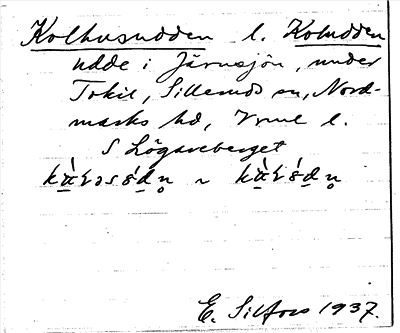 Kolhusudden l. Koludden
udde i Järnsjön, under
Tokil, Sillerud sn, Nord-
marks hd, Vrml l.
S Lögareberget
E. Silfors 1937.